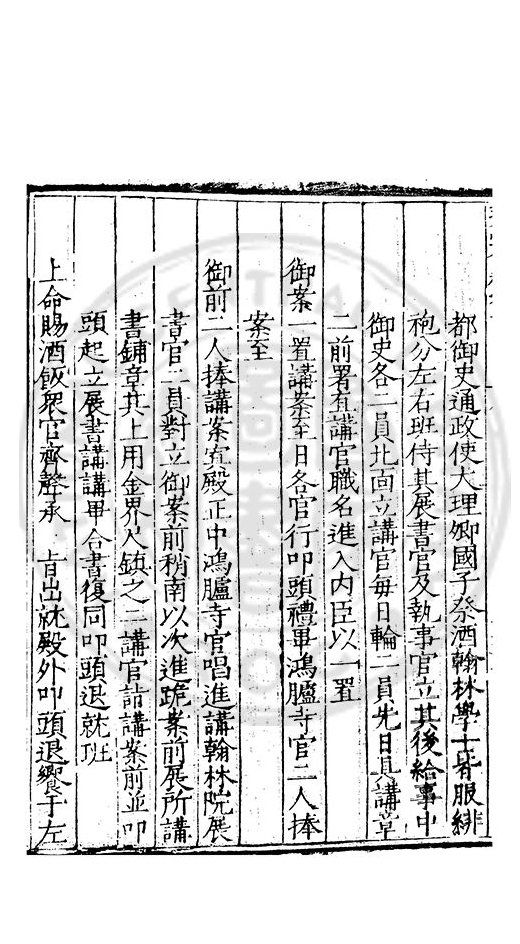 都御史通政使大理卿國子祭酒翰林學士皆服緋
袍分左右班侍其展書官及執事官立其後給事中
御史各二員北面立講官每日輪二員先日具講章
二前署直講官職名進入内臣以一置
御案一置講案至日各官行叩頭禮畢鴻臚寺官二人捧
案至
御前二人捧講案寘殿正中鴻臚寺官唱進講翰林院展
書官二員對立御案前稍南以次進跪案前展所講
書鋪章其上用金界尺鎮之二講官詣講案前並叩
頭起立展書講講畢合書復同叩頭退就班
上命賜酒飯衆官齊聲承 旨出就殿外叩頭退饗于左